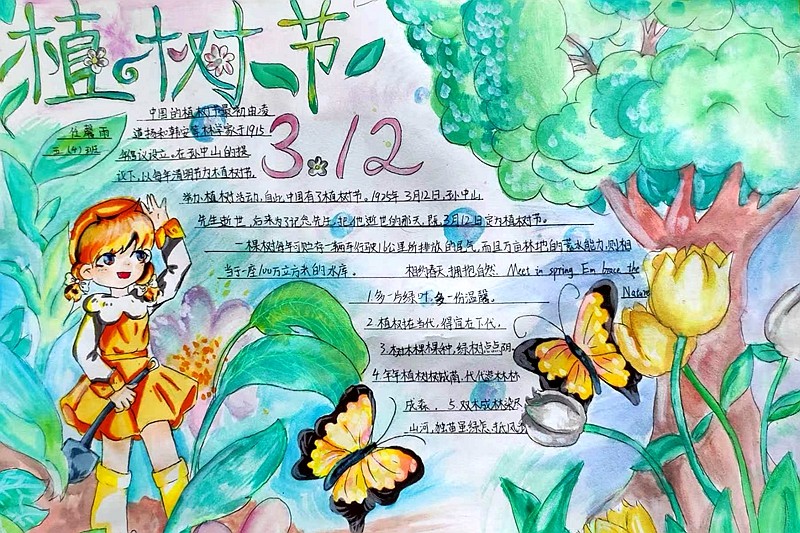 植树节
3.12
馨雨
五(4)班
中国的植树节最初由凌
道扬和韩安等林学家于1915
年倡议设立。在孙中山的提
议下,以每年清明节为木植树节,
举办植树活动,自此,中国有了植树节。1925年3月12日,孙中山
先生逝世,后来为了纪念先生,把他逝世的那天,既3月12日定为植树节。
一棵树每年可贮存一辆车行驶16公里所排放的尾气,而且万亩林地的蓄水能力,则相
当于一座100万立方米的水库。
相约春天 拥抱自然 Meet in spring Em brace the
Nature
1.多一片绿叶,多一份温馨。
2.植树在当代,得宜在下代。
3.树木棵棵种,绿树点点阴。
4.年年植树树成荫,代代造林林
成森。 5.双木成林染尽
山河,独苗单绿怎抵风